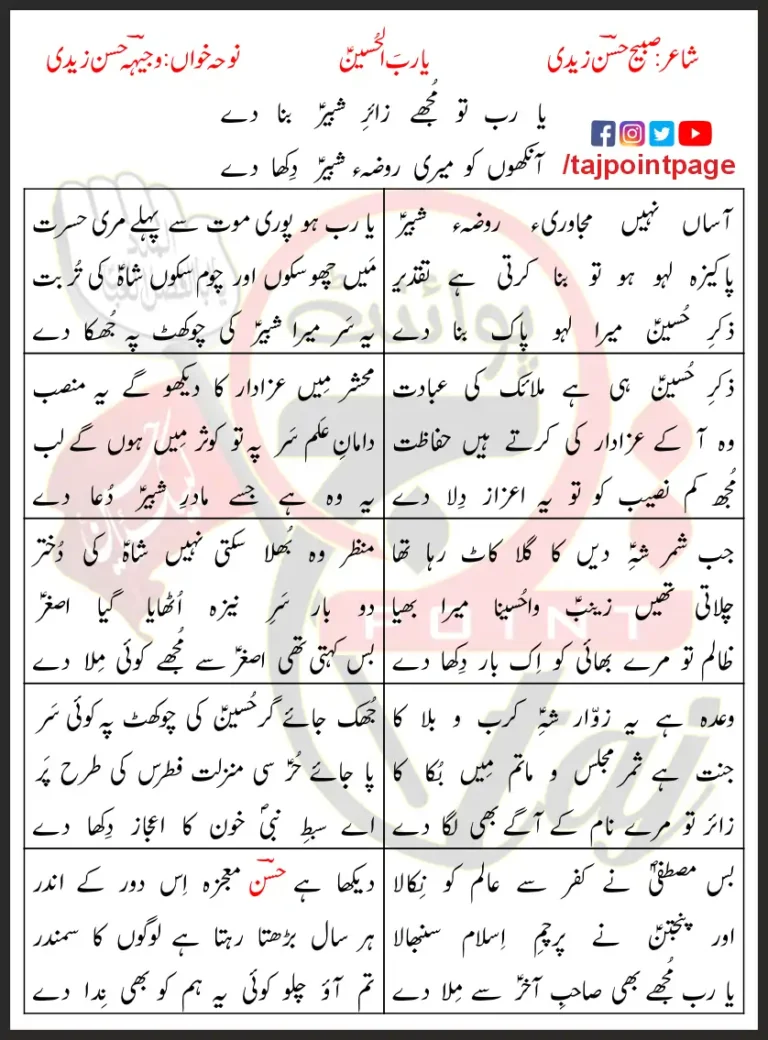 شاعر: صبیح حسن زیدی
یا ربَ الحُسینؑ
نوحہ خواں: وجیہہ حسن زیدی
یا رب تو مُجھے زائرِ شبیرؑ بنا دے
آنکھوں کو میری روضہء شبیرؑ دِکھا دے
/tajpointpage
آساں نہیں مجاوریء روضہء شبیرؑ
پاکیزہ لہو ہو تو بنا کرتی ہے تقدیر
ذکرِ حُسینؑ میرا لہو پاک بنا دے
یا رب ہو پوری موت سے پہلے مری حسرت
مَیں چھو سکوں اور چوم سکوں شاہؑ کی تُربت
یہ سَر میرا شبیرؑ کی چوکھٹ پہ جُھکا دے
ذکرِ حُسینؑ ہی ہے ملائک کی عبادت
وہ آ کے عزادار کی کرتے ہیں حفاظت
مُجھ کم نصیب کو تو یہ اعزاز دِلا دے
محشر مِیں عزادار کا دیکھو گے یہ منصب
دامانِ عَلم سَر پہ تو کوثر مِیں ہوں گے لب
یہ وہ ہے جسے مادرِ شبیرؑ دُعا دے
جب شمر شہِؑ دیں کا گلا کاٹ رہا تھا
چلاتی تھیں زینبؑ واحُسینا میرا بھیا
ظالم تو مرے بھائی کو اِک بار دِکھا دے
منظر وہ بُھلا سکتی نہیں شاہؑ کی دُختر
دو بار سَرِ نیزہ اُٹھایا گیا اصغرؑ
بس کہتی تھی اصغرؑ سے مُجھے کوئی مِلا دے
وعدہ ہے یہ زوّار شہِؑ کرب و بلا کا
جنت ہے ثمر مجلس و ماتم مِیں بُکا کا
زائر تو مرے نام کے آگے بھی لگا دے
جُھک جائے گر حُسینؑ کی چوکھٹ پہ کوئی سَر
پا جائے حُرؑ سی منزلت فطرس کی طرح پَر
اے سبطِ نبیؐ خون کا اعجاز دِکھا دے
بس مصطفیٰؐ نے کفر سے عالم کو نِکالا
اور پنجتنؑ نے پرچمِ اِسلام سنبھالا
یا رب مُجھے بھی صاحبِ آخرؑ سے مِلا دے
دیکھا ہے حسن معجزہ اِس دور کے اندر
ہر سال بڑھتا رہتا ہے لوگوں کا سمندر
تم آؤ چلو کوئی یہ ہم کو بھی نِدا دے
پوائنٹ
POINT
Taj